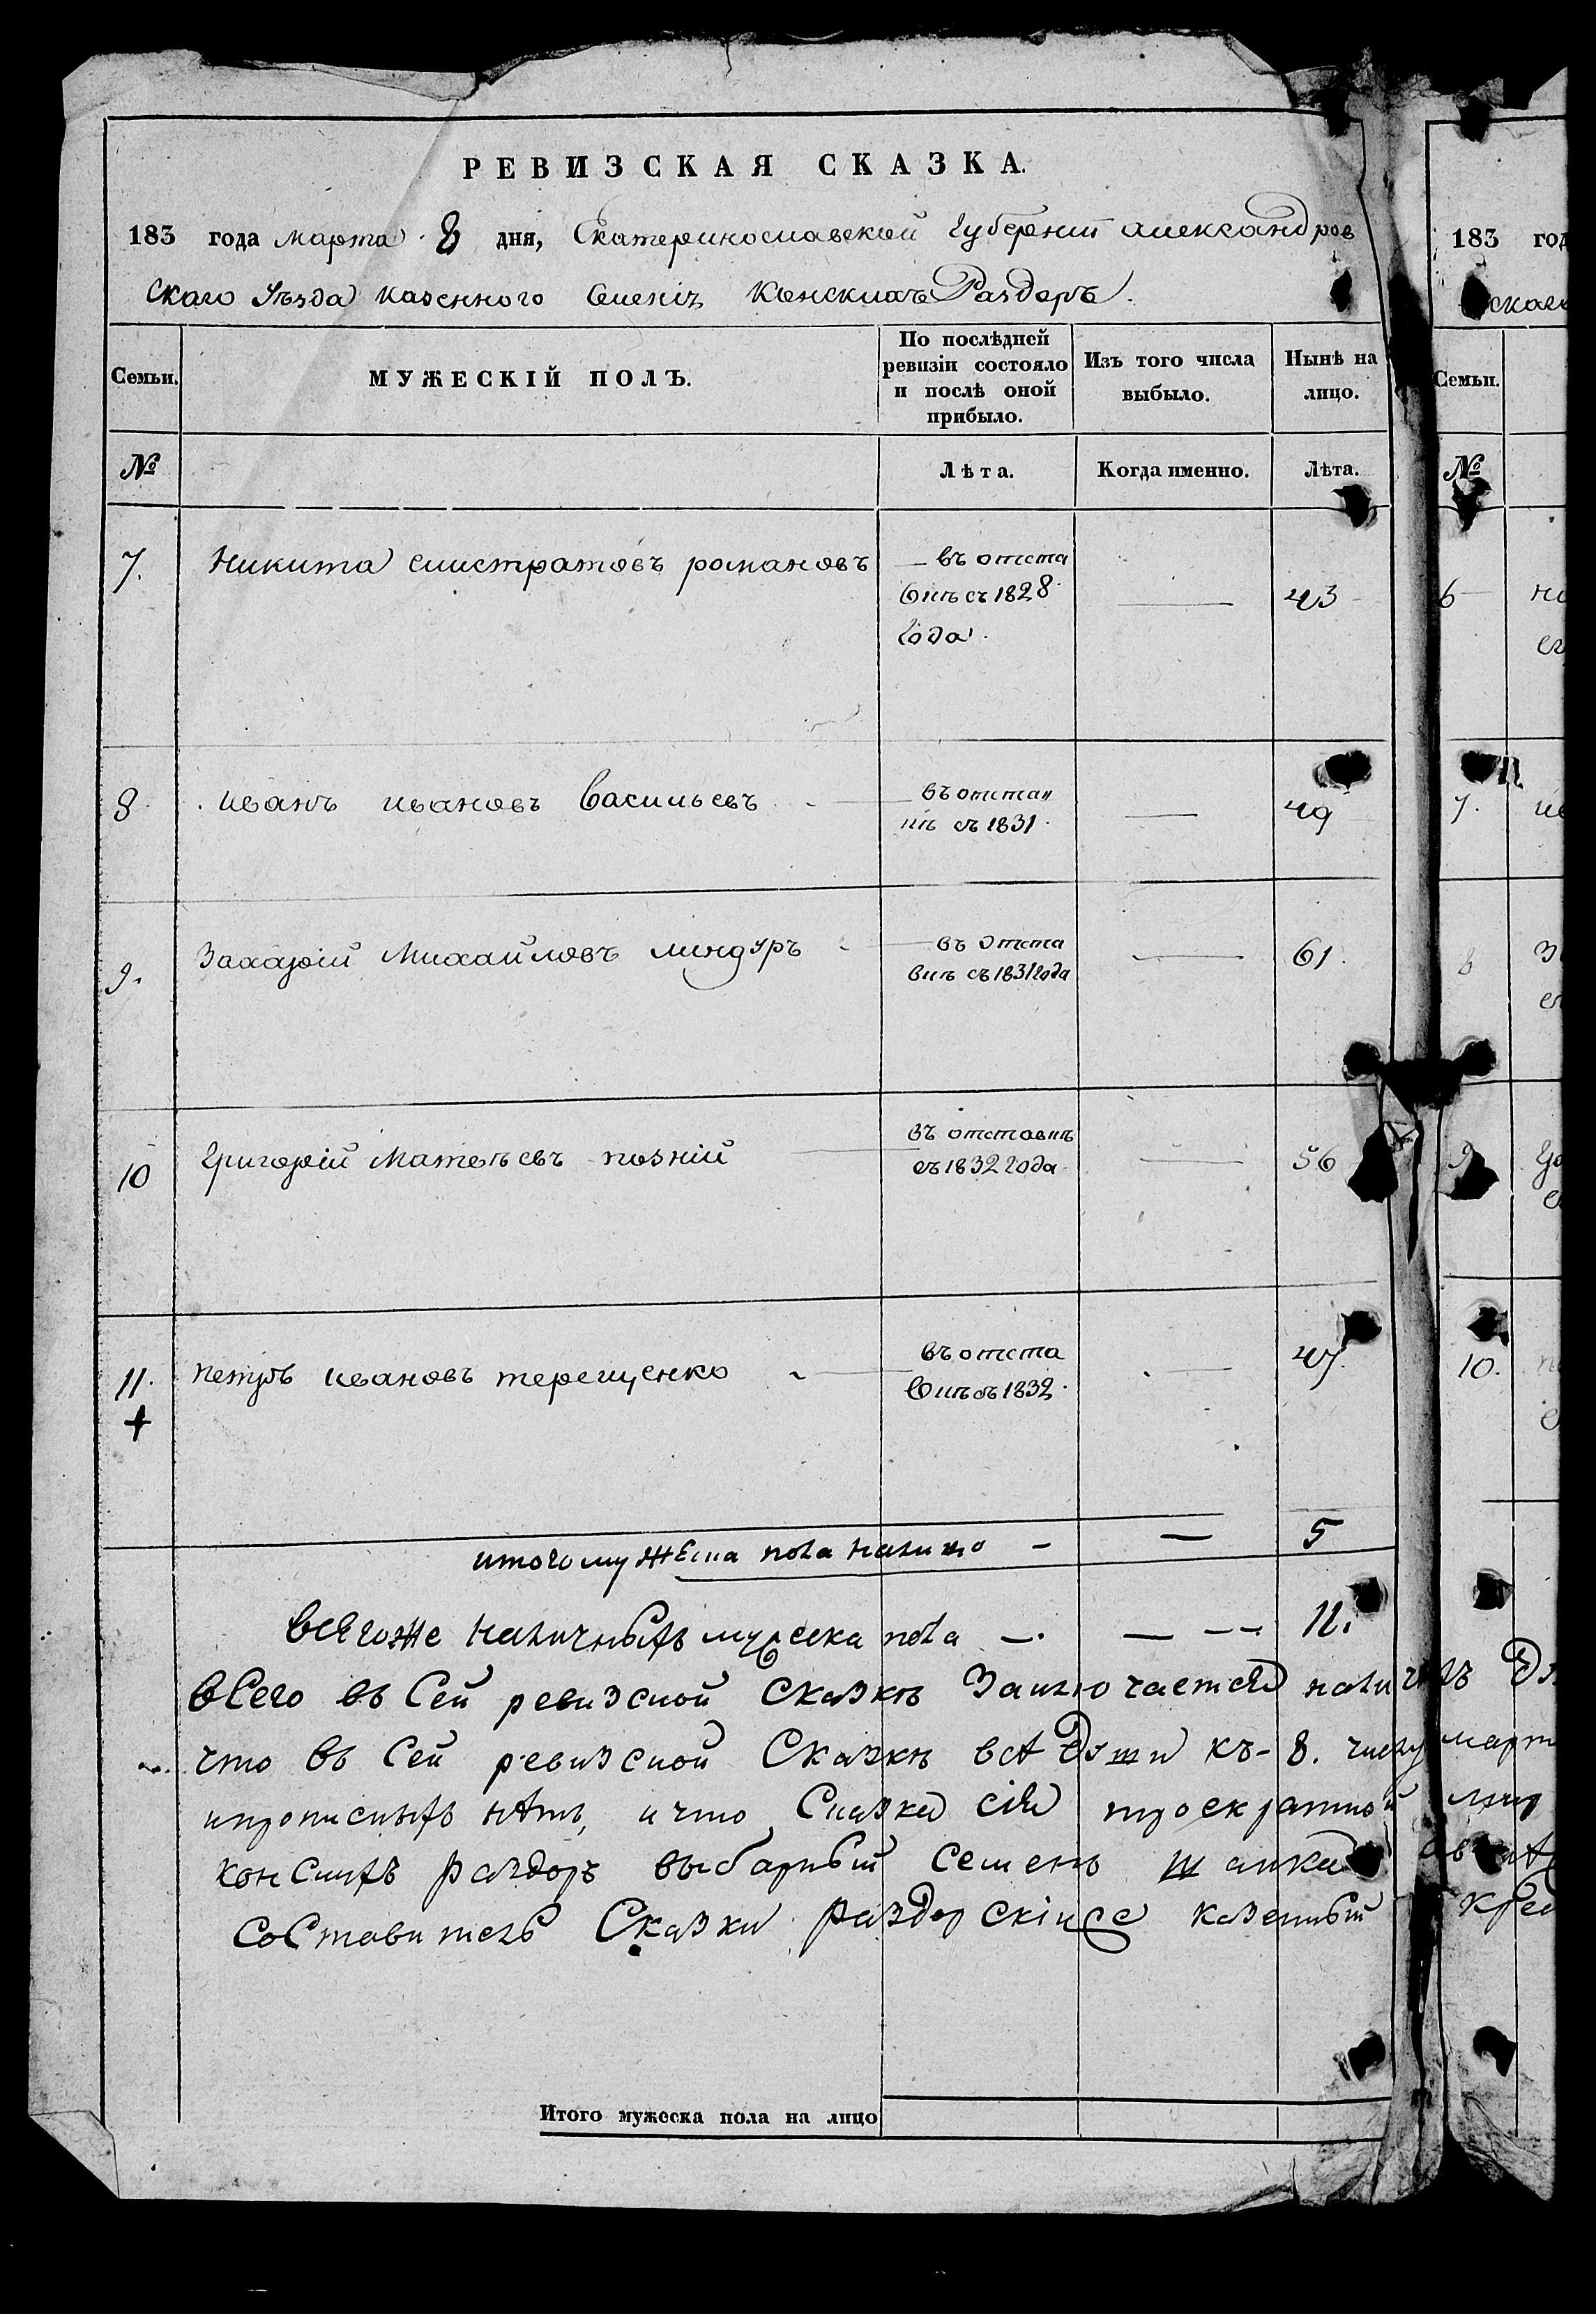 РЕВИЗСКАЯ СКАЗКА.
183 года марта 8 дня, Екатеринославской Губерніи александров
скаго Уѣзда казенного Селенія Конскихъ Раздоръ.
Семьи.
МУЖЕСКІЙ ПОЛЪ.
По послѣдней ревизіи состояло и послѣ оной прибыло.
Изъ того числа выбыло.
Нынѣ на лицо.
№
Лѣта.
Когда именно.
Лѣта.
7. Никита елистратовъ романовъ — въ отста
вкѣ съ 1828 — 43
года.
8. иванъ ивановъ Васильевъ — въ отстав
кѣ съ 1831. — 49
9. Захарій Михайловъ линдуръ — въ отста
вкѣ съ 1831 года — 61.
10 Григорій Матвѣевъ позній — въ отставкѣ
съ 1832 года — 56
11. петръ ивановъ терещенко — въ отста
вкѣ съ 1832. — 47.
+
итого мужеска пола налицо — — 5
всегоже наличныхъ мужеска пола — — — 11.
всего въ Сей ревизской Сказкѣ Заключается
что въ Сей ревизской Сказкѣ всѣ къ 8. числу март
ипрописныхъ нѣтъ, и что Сказка сія троекратной
конскихъ раздоръ выбарный семенъ
Составитель Сказки казенный
Итого мужеска пола на лицо
183 год
скаго
Семьи.
№
6
7.
8
9
10.